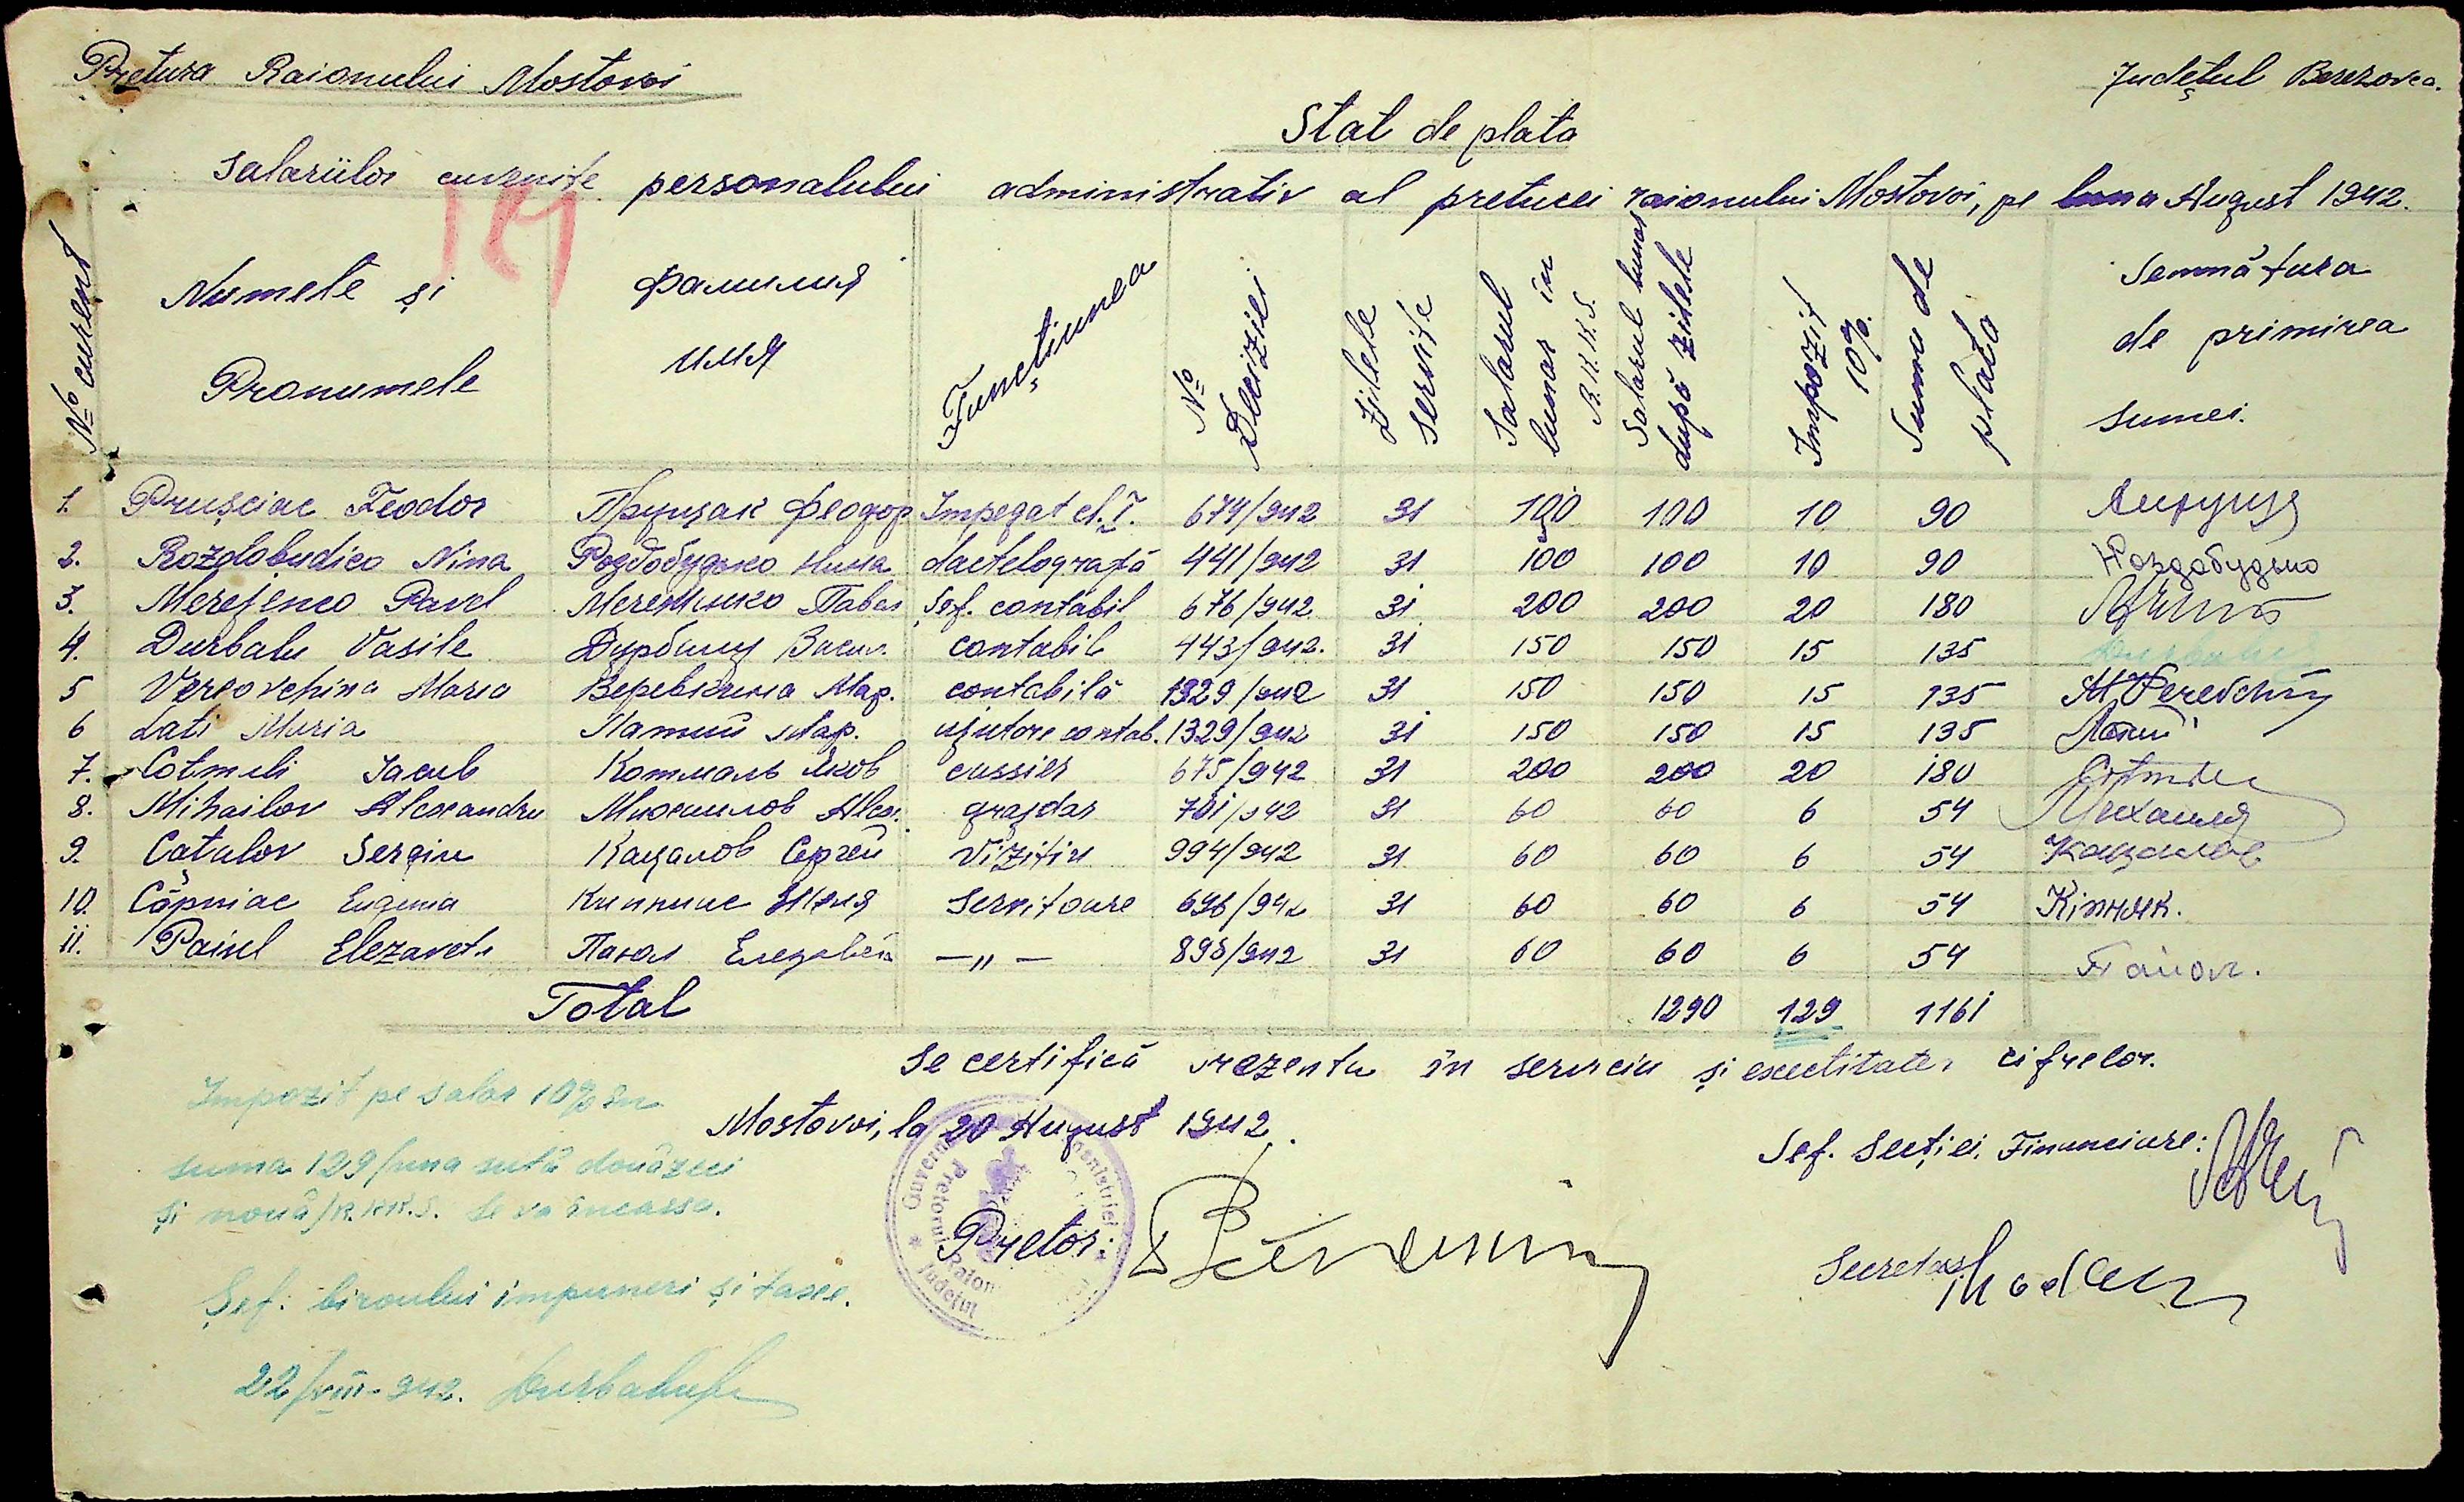 Pretura Raionului Mostovoi
Județul Berezovca.
Stat de plata
Salariilor cuvenite personalului administrativ al preturei raionului Mostovoi, pe luna August 1942.
№ curent
Numele și Pronumele
Фамилия имя
Funcțiunea
№ Deciziei
Zilele servite
Salarul lunar în R.K.K.S.
Salarul lunar după zilele
Impozit 10%
Suma de plata
Semnătura de primirea sumei.
1. Prușciac Feodor Прущак Феодор Impegat cl. I. 674/942 31 100 100 10 90
2. Rozdobudico Nina Роздобудько Нина dactelografă 441/942 31 100 100 10 90 Роздобудько
3. Merejenco Pavel Мережинко Павел Șef. contabil 676/942 31 200 200 20 180
4. Durbalu Vasile Дурбалу Васил. contabil 443/942. 31 150 150 15 135 Durbalu
5 Vereovchina Maria Веревкина Мар. contabilă 1329/942 31 150 150 15 135
6 Lati Maria Латий Мар. ajutore contab. 1329/942 31 150 150 15 135 Латий
7. Cotmali Iacub Котмаль Яков cassier 675/942 31 200 200 20 180
8. Mihailov Alexandru Михаилов Алек. grajdar 701/942 31 60 60 6 54
9. Cațalov Sergiu Кацалов Сергей Vizitiu 994/942 31 60 60 6 54 Кацалов
10. Căpniac Eugenia Servitoare 696/942 31 60 60 6 54 Кіпняк.
11. Paiul Elezaveta Паюл Елезавета —„— 898/942 31 60 60 6 54
Total 1290 129 1161
Se certifică prezenta în serviciu și exactitatea cifrelor.
Mostovoi, la 20 August 1942.
Pretor:
Șef. Secției Financiare:
Secretar
Impozit pe salar 10% în
suma 129/una sută douăzeci
și nouă/R.KK.S. se va încassa.
Șef. biroului impuneri și taxe.
22/VIII-942. Durbalu